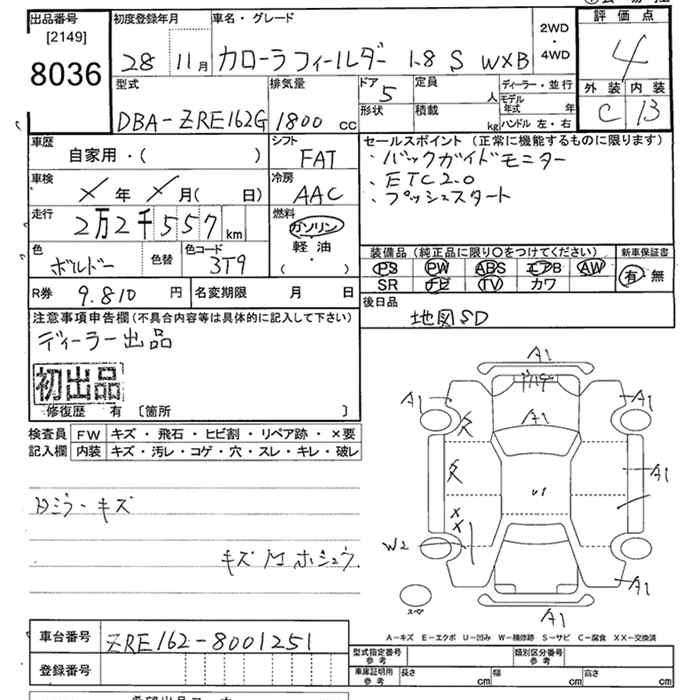 出品番号 初度登録年月 車名・グレード 評価点
[2149]
8036 28 11月 カローラフィールダー 1.8 S W×B 2WD・4WD 4
外装 内装
C B
型式 排気量 ドア 定員 ディーラー・並行
DBA-ZRE162G 1800 cc 5 人 モデル年式 年
形状 積載 kg ハンドル 左・右
車歴 シフト セールスポイント (正常に機能するものに限ります)
自家用・( ) FAT ・バックガイドモニター
車検 冷房 ・ETC2.0
× 年 × 月( 日) AAC ・プッシュスタート
走行 燃料
2万2千557 km ガソリン
軽油
( ・ )
色 色替 色コード 装備品 (純正品に限り○をつけてください) 新車保証書
ボルドー 3T9 PS PW ABS エアB AW 有・無
SR ナビ TV カワ
R券 9.810 円 名変期限 月 日 後日品
地図SD
注意事項申告欄(不具合内容等は具体的に記入して下さい)
ディーラー出品
初出品
修復歴 有 〔箇所 〕
検査員 FW キズ・飛石・ヒビ割・リペア跡・×要
記入欄 内装 キズ・汚レ・コゲ・穴・スレ・キレ・破レ
A1
A1 A1
A1
A1
W2
A1
A1
スペア
Rミラーキズ
A-キズ E-エクボ U-凹み W-補修跡 S-サビ C-腐食 XX-交換済
車台番号 ZRE162-8001251
登録番号
型式指定番号 参考 類別区分番号 参考
車庫証明用 参考 長さ cm 幅 cm 高さ cm